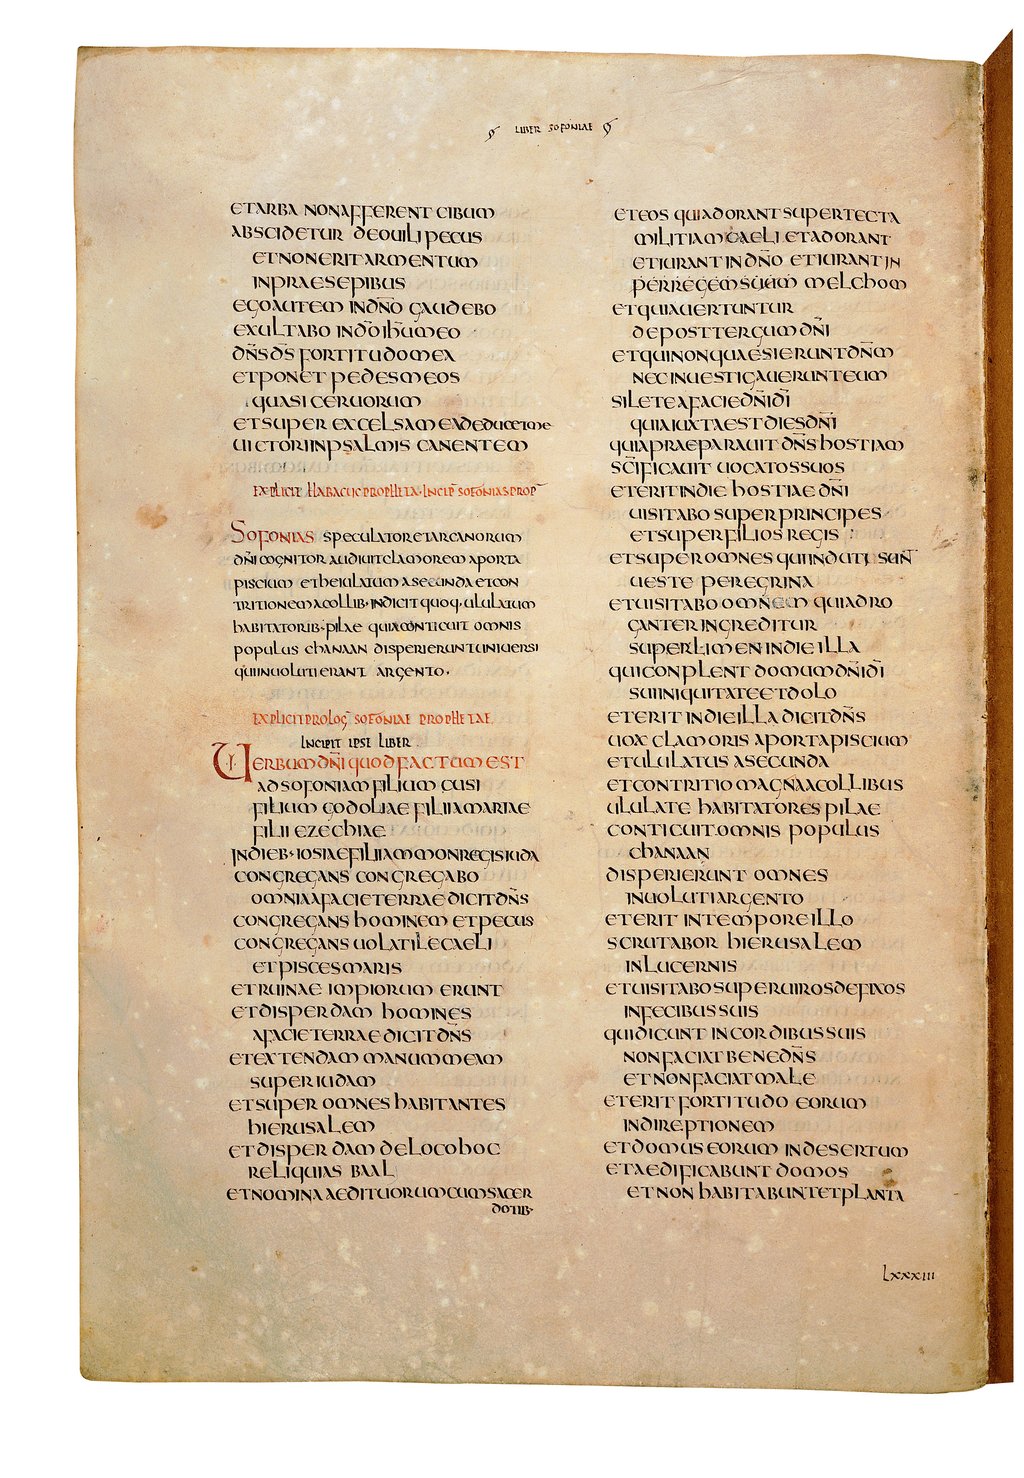 LIBER SOFONIAE
ETARBA NONAFFERENT CIBUM
ABSCIDETUR DEOUILI PECUS
ETNONERITARMENTUM
INPRAESEPIBUS
EGOAUTEM INDN̄O GAUDEBO
EXULTABO INDO IHUMEO
DN̄S DS̄ FORTITUDOMEA
ETPONET PEDESMEOS
QUASI CERUORUM
ETSUPER EXCELSAMEADEDUCETME
UICTORIINPSALMIS CANENTEM
EXPLICIT HABACUCPROPHETA·INCIP̄ SOFONIASPROP̄
SOFONIAS SPECULATORETARCANORUM
DN̄I COGNITOR AUDIUITCLAMOREM APORTA
PISCIUM ETHEIULATUM ASECUNDA ETCON
TRITIONEMACOLLIB·INDICITQUOQ·ULULATUM
HABITATORIB·PILAE QUIACONTICUIT OMNIS
POPULUS CHANAAN DISPERIERUNTUNIUERSI
QUIINUOLUTIERANT ARGENTO·
EXPLICITPROLOḠ SOFONIAE PROPHETAE
INCIPIT IPSE LIBER
UERBUMDN̄I QUODFACTUMEST
ADSOFONIAMFILIUM CUSI
FILIUM GODOLIAE FILIIAMARIAE
FILII EZECHIAE
INDIEB·IOSIAEFILIIAMMONREGISIUDA
CONGREGANS CONGREGABO
OMNIAAFACIETERRAEDICITDN̄S
CONGREGANS HOMINEM ETPECUS
CONGREGANS UOLATILECAELI
ETPISCESMARIS
ETRUINAE IMPIORUM ERUNT
ETDISPERDAM HOMINES
AFACIETERRAEDICITDN̄S
ETEXTENDAM MANUMMEAM
SUPERIUDAM
ETSUPER OMNES HABITANTES
HIERUSALEM
ETDISPERDAM DELOCOHOC
RELIQUIAS BAAL
ETNOMINAAEDITUORUMCUMSACER
DOTIB·
ETEOS QUIADORANTSUPERTECTA
MILITIAMCAELI ETADORANT
ETIURANTINDN̄O ETIURANTIN
PERREGEMSUUM MELCHOM
ETQUIAUERTUNTUR
DEPOSTTERGUMDN̄I
ETQUINONQUAESIERUNTDN̄M
NECINUESTIGAUERUNTEUM
SILETEAFACIEDN̄IDĪ
QUIAIUXTAESTDIESDN̄I
QUIAPRAEPARAUIT DN̄SHOSTIAM
SC̄IFICAUIT UOCATOSSUOS
ETERITINDIE HOSTIAE DN̄I
UISITABO SUPERPRINCIPES
ETSUPERFILIOS REGIS
ETSUPEROMNES QUIINDUTI SUNT
UESTE PEREGRINA
ETUISITABO OMNEM QUIADRO
GANTERINGREDITUR
SUPERLIMEN·INDIEILLA
QUICONPLENT DOMUMDN̄IDĪ
SUIINIQUITATEETDOLO
ETERIT INDIEILLADICITDN̄S
UOX CLAMORIS APORTAPISCIUM
ETULULATUS ASECUNDA
ETCONTRITIO MAGNAACOLLIBUS
ULULATE HABITATORES PILAE
CONTICUIT·OMNIS POPULUS
CHANAAN
DISPERIERUNT OMNES
INUOLUTIARGENTO
ETERIT INTEMPOREILLO
SCRUTABOR HIERUSALEM
INLUCERNIS
ETUISITABOSUPERUIROSDEFIXOS
INFECIBUSSUIS
QUIDICUNT INCORDIBUSSUIS
NONFACIATBENEDN̄S
ETNONFACIATMALE
ETERIT FORTITUDO EORUM
INDIREPTIONEM
ETDOMUSEORUM INDESERTUM
ETAEDIFICABUNT DOMOS
ETNON HABITABUNTETPLANTA
LXXXIII